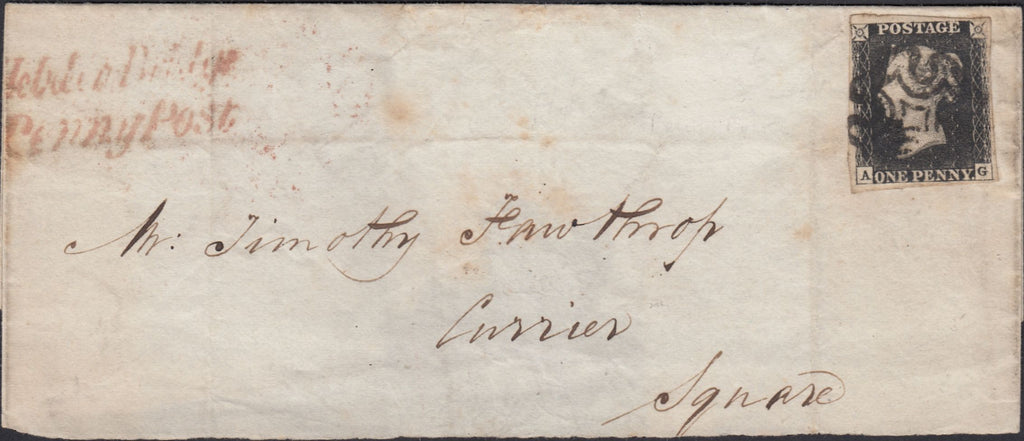 Hebden Bridge
Penny Post
POSTAGE
A ONE PENNY G
Mr: Timothy Fawthrop
Currier
Square